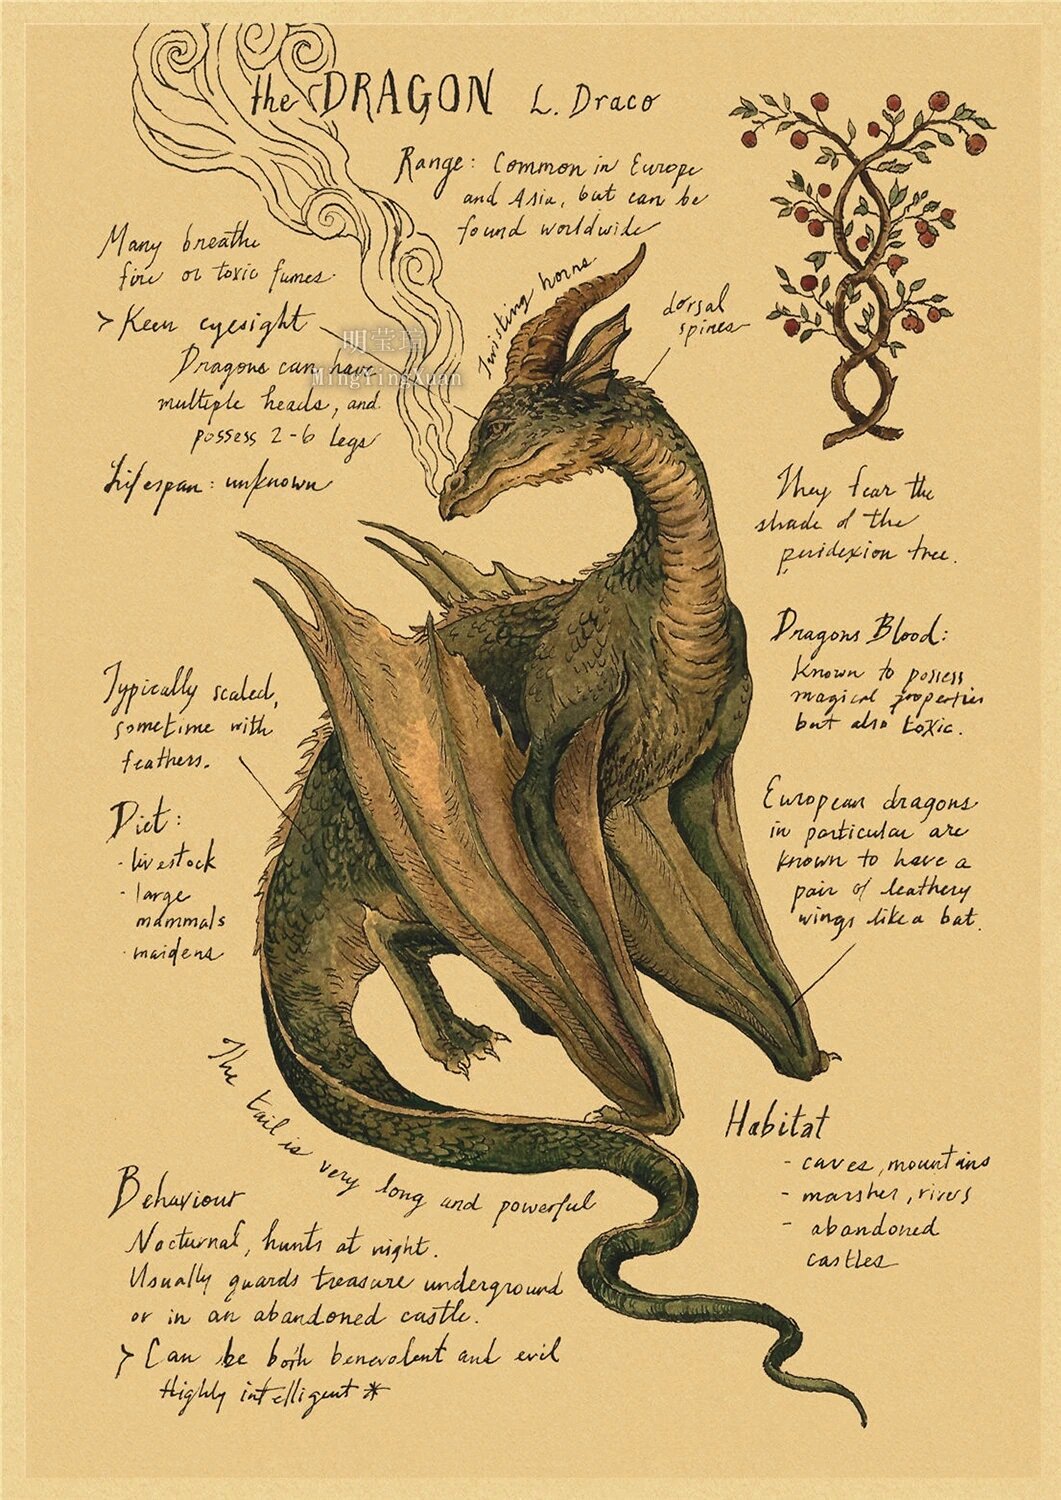 the DRAGON L. Draco
Range: Common in Europe
and Asia, but can be
found worldwide
Many breathe
fire or toxic fumes
> Keen eyesight
Dragons can have
multiple heads, and
possess 2-6 legs
Lifespan: unknown
明莹瑄
MingYingXuan
Twisting horns
dorsal
spines
They fear the
shade of the
peridexion tree.
Dragons Blood:
Known to possess
magical properties
but also toxic.
Typically scaled,
sometime with
feathers.
Diet:
- livestock
- large
mammals
- maidens
European dragons
in particular are
known to have a
pair of leathery
wings like a bat.
The tail is very long and powerful
Habitat
- caves, mountains
- marshes, rivers
- abandoned
castles
Behaviour
Nocturnal, hunts at night.
Usually guards treasure underground
or in an abandoned castle.
> Can be both benevolent and evil
Highly intelligent *